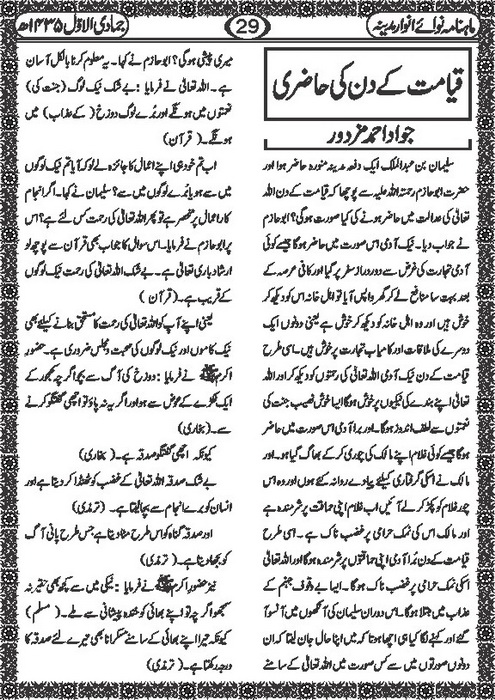 ماہنامہ نوائے انوار مدینہ
29
جمادی الاوّل ۱۴۳۵ھ
قیامت کے دن کی حاضری
جواد احمد مزدور
سلیمان بن عبدالملک ایک دفعہ مدینہ منورہ حاضر ہوا اور
حضرت ابوحازم رحمتہ اللہ علیہ سے پوچھا کہ قیامت کے دن اللہ
تعالیٰ کی عدالت میں حاضر ہونے کی کیا صورت ہوگی؟ ابوحازم
نے جواب دیا۔ نیک آدمی اس صورت میں حاضر ہوگا جیسے کوئی
آدمی تجارت کی غرض سے دور دراز سفر پر گیا اور کافی عرصہ کے
بعد بہت سا منافع لے کر گھر واپس آیا تو اہل خانہ اس کو دیکھ کر
خوش ہیں اور وہ اہل خانہ کو دیکھ کر خوش ہے یعنی دونوں ایک
دوسرے کی ملاقات اور کامیاب تجارت پر خوش ہیں۔ اسی طرح
قیامت کے دن نیک آدمی اللہ تعالیٰ کی رحمتوں کو دیکھ کر اور اللہ
تعالیٰ اپنے بندے کی نیکیوں پر خوش ہوگا ایسا خوش نصیب جنت کی
نعمتوں سے لطف اندوز ہوگا۔ اور برا آدمی اس صورت میں حاضر
ہوگا جیسے کوئی غلام اپنے مالک کی چوری کر کے بھاگ گیا ہو۔ اور
مالک نے اسکی گرفتاری کیلئے پیادے روانہ کئے ہوں اور وہ اس
چور غلام کو پکڑ کر لے آئیں اب غلام اپنی حماقت پر شرمندہ ہے
اور مالک اس کی نمک حرامی پر غضب ناک ہے۔ اسی طرح
قیامت کے دن بُرا آدمی اپنی حماقتوں پر شرمندہ ہوگا اور اللہ تعالیٰ
اسکی نمک حرامی پر غضب ناک ہوگا۔ ایسا بے وقوف جہنم کے
عذاب میں مبتلا ہوگا۔ اس دوران سلیمان کی آنکھوں میں آنسو آ
گئے اور کہنے لگا کیا ہی اچھا ہوتا کہ میں اپنا حال جان لیتا کہ ان
دونوں صورتوں میں سے کس صورت میں اللہ تعالیٰ کے سامنے
میری پیشی ہوگی؟ ابوحازم نے کہا۔ یہ معلوم کرنا بالکل آسان
ہے۔ اللہ تعالیٰ نے فرمایا: بے شک نیک لوگ (جنت کی)
نعمتوں میں ہونگے اور بُرے لوگ دوزخ (کے عذاب) میں
ہونگے۔ (قرآن)
اب تم خود ہی اپنے اعمال کا جائزہ لے لو کہ آیا تم نیک لوگوں
میں سے ہو یا بُرے لوگوں میں سے؟ سلیمان نے کہا۔ اگر انجام
کار اعمال پر منحصر ہے تو پھر اللہ تعالیٰ کی رحمت کس لئے ہے؟ اس
پر ابوحازم نے فرمایا۔ اس سوال کا جواب بھی قرآن سے پوچھ لو
ارشاد باری تعالیٰ ہے۔ بے شک اللہ تعالیٰ کی رحمت نیک لوگوں
کے قریب ہے۔ (قرآن)
یعنی اپنے آپ کو اللہ تعالیٰ کی رحمت کا مستحق بنانے کیلئے بھی
نیک کاموں اور نیک لوگوں کی صحبت و مجلس ضروری ہے۔ حضور
اکرم ﷺ نے فرمایا: دوزخ کی آگ سے بچو اگرچہ کھجور کے
ایک ٹکڑے کے عوض سے ہو اور اگر یہ نہ پاؤ تو اچھی گفتگو کرنے
سے۔ (بخاری)
کیونکہ اچھی گفتگو صدقہ ہے۔ (بخاری)
بے شک صدقہ اللہ تعالیٰ کے غضب کو ٹھنڈا کر دیتا ہے اور
انسان کو برے انجام سے بچا لیتا ہے۔ (ترمذی)
اور صدقہ گناہ کو اس طرح مٹا دیتا ہے جس طرح پانی آگ
کو بجھا دیتا ہے۔ (ترمذی)
نیز حضور اکرم ﷺ نے فرمایا: نیکی میں سے کچھ بھی حقیر نہ
سمجھو اگرچہ تو اپنے بھائی کو خندہ پیشانی سے ملے۔ (مسلم)
کیونکہ تیرا اپنے بھائی کے سامنے مسکرانا بھی تیرے لئے صدقہ کا
درجہ رکھتا ہے۔ (ترمذی)